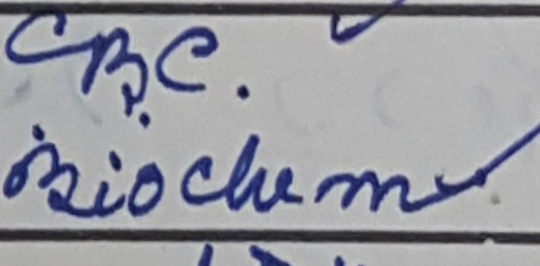 CBC.
Biochem